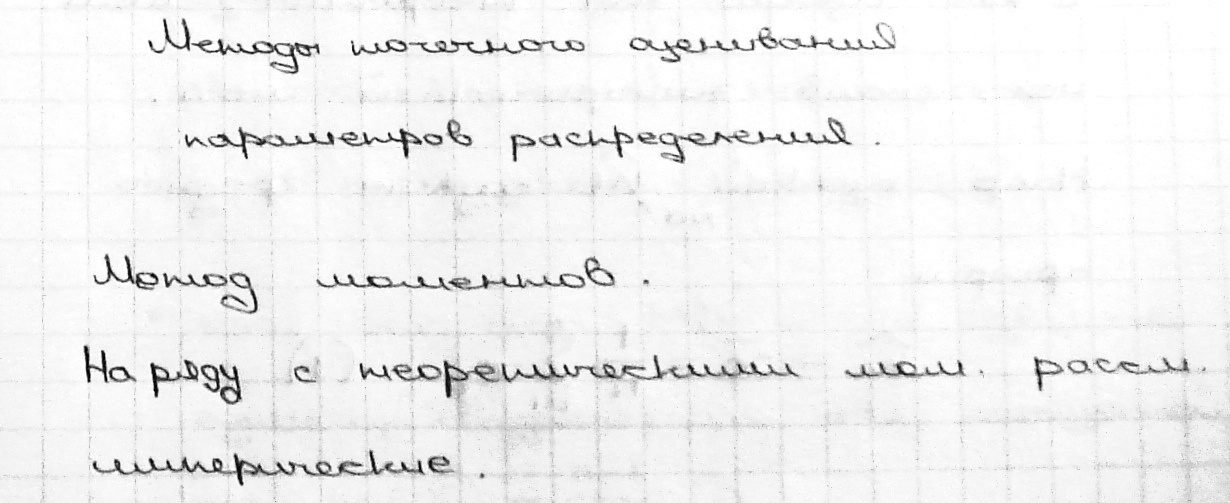 Методы точечного оценивания
параметров распределения.
Метод моментов.
На ряду с теоретическими мом. рассм.
имперические.